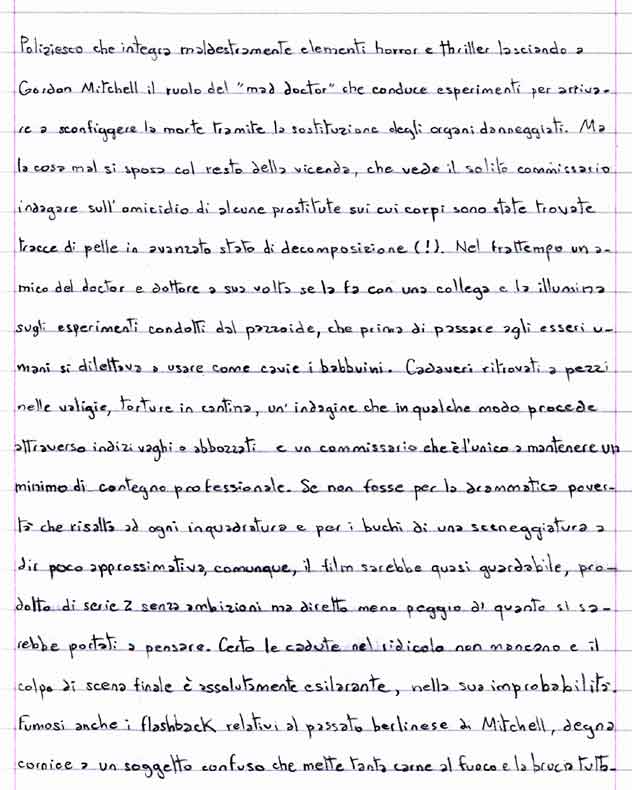 Poliziesco che integra maldestramente elementi horror e thriller lasciando a
Gordon Mitchell il ruolo del "mad doctor" che conduce esperimenti per arriva-
re a sconfiggere la morte tramite la sostituzione degli organi danneggiati. Ma
la cosa mal si sposa col resto della vicenda, che vede il solito commissario
indagare sull'omicidio di alcune prostitute sui cui corpi sono state trovate
tracce di pelle in avanzato stato di decomposizione (!). Nel frattempo un a-
mico del doctor e dottore a sua volta se la fa con una collega e la illumina
sugli esperimenti condotti dal pazzoide, che prima di passare agli esseri u-
mani si dilettava a usare come cavie i babbuini. Cadaveri ritrovati a pezzi
nelle valigie, torture in cantina, un'indagine che in qualche modo procede
attraverso indizi vaghi o abbozzati e un commissario che è l'unico a mantenere un
minimo di contegno professionale. Se non fosse per la drammatica pover-
tà che risalta ad ogni inquadratura e per i buchi di una sceneggiatura a
dir poco approssimativa, comunque, il film sarebbe quasi guardabile, pro-
dotto di serie Z senza ambizioni ma diretto meno peggio di quanto si sa-
rebbe portati a pensare. Certo le cadute nel ridicolo non mancano e il
colpo di scena finale è assolutamente esilarante, nella sua improbabilità.
Fumosi anche i flashback relativi al passato berlinese di Mitchell, degna
cornice a un soggetto confuso che mette tanta carne al fuoco e la brucia tutta.